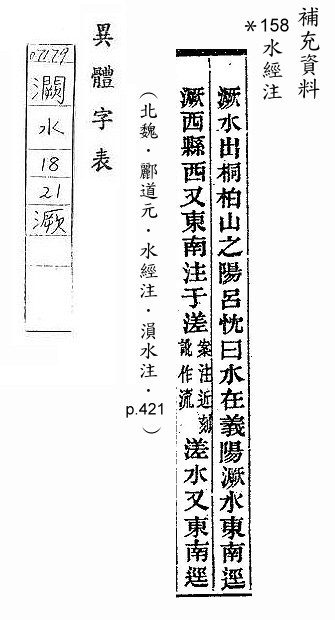 補充資料
*158水經注
㵐水出桐柏山之陽呂忱曰水在義陽㵐水東南逕
㵐西縣西又東南注于溠案注近刻訛作流溠水又東南逕
(北魏．酈道元．水經注．溳水注．p.421)
異體字表
灍
水
18
21
㵐